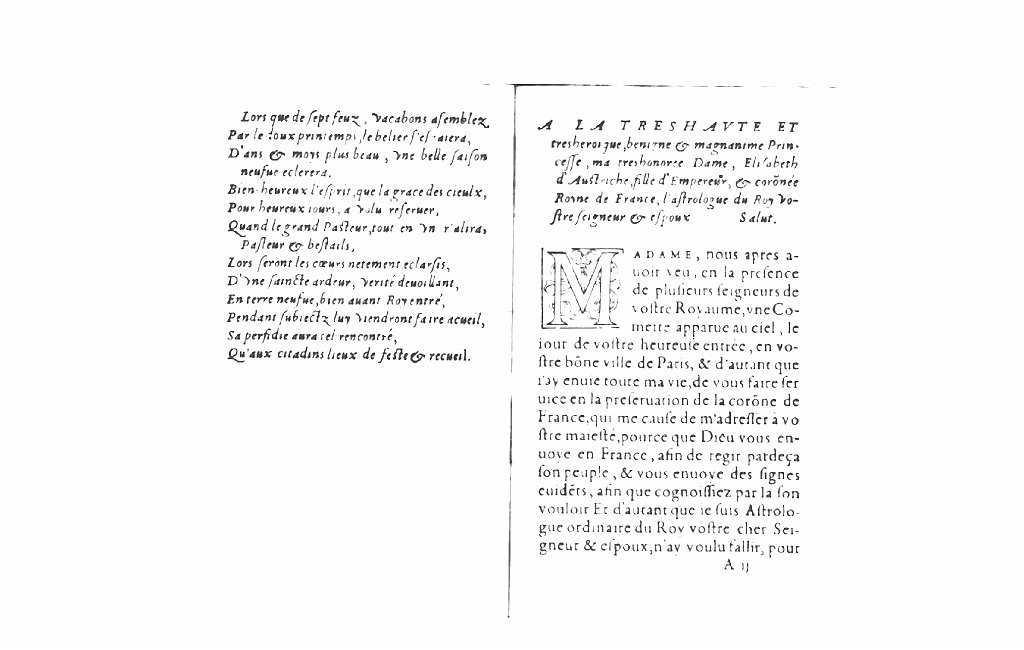 Lors que de ſept feux, vacabons aſemblez,
Par le doux printemps, le belier s'eſgaiera,
D'ans & moys plus beau, vne belle ſaiſon
neufue eclerera.
Bien-heureux l'eſprit, que la grace des cieulx,
Pour heureux iours, a volu reſeruer,
Quand le grand Paſteur, tout en vn r'alira,
Paſteur & beſtails,
Lors ſeront les cœurs netement eclarſis,
D'vne ſaincte ardeur, verité deuoillant,
En terre neufue, bien auant Roy entré,
Pendant ſubiectz luy viendront faire acueil,
Sa perfidie aura tel rencontré,
Qu'aux citadins lieux de feſte & recueil.
A LA TRESHAVTE ET
tresheroique, benigne & magnanime Prin-
ceſſe, ma treshonoree Dame, Eliſabeth
d'Auſtriche, fille d'Empereur, & corõnée
Royne de France, l'aſtrologue du Roy vo-
ſtre ſeigneur & eſpoux Salut.
MADAME, nous apres a-
uoir veu, en la preſence
de pluſieurs ſeigneurs de
voſtre Royaume, vne Co-
mette apparue au ciel, le
iour de voſtre heureuſe entrée, en vo-
ſtre bõne ville de Paris, & d'autant que
i'ay enuie toute ma vie, de vous faire ſer
uice en la preſeruation de la corõne de
France, qui me cauſe de m'adreſſer à vo
ſtre maieſté, pource que Dieu vous en-
uoye en France, afin de regir pardeça
ſon peuple, & vous enuoye des ſignes
euidẽts, afin que cognoiſſiez par la ſon
vouloir Et d'autant que ie ſuis Aſtrolo-
gue ordinaire du Roy voſtre cher Sei-
gneur & eſpoux, n'ay voulu fallir, pour
A ij